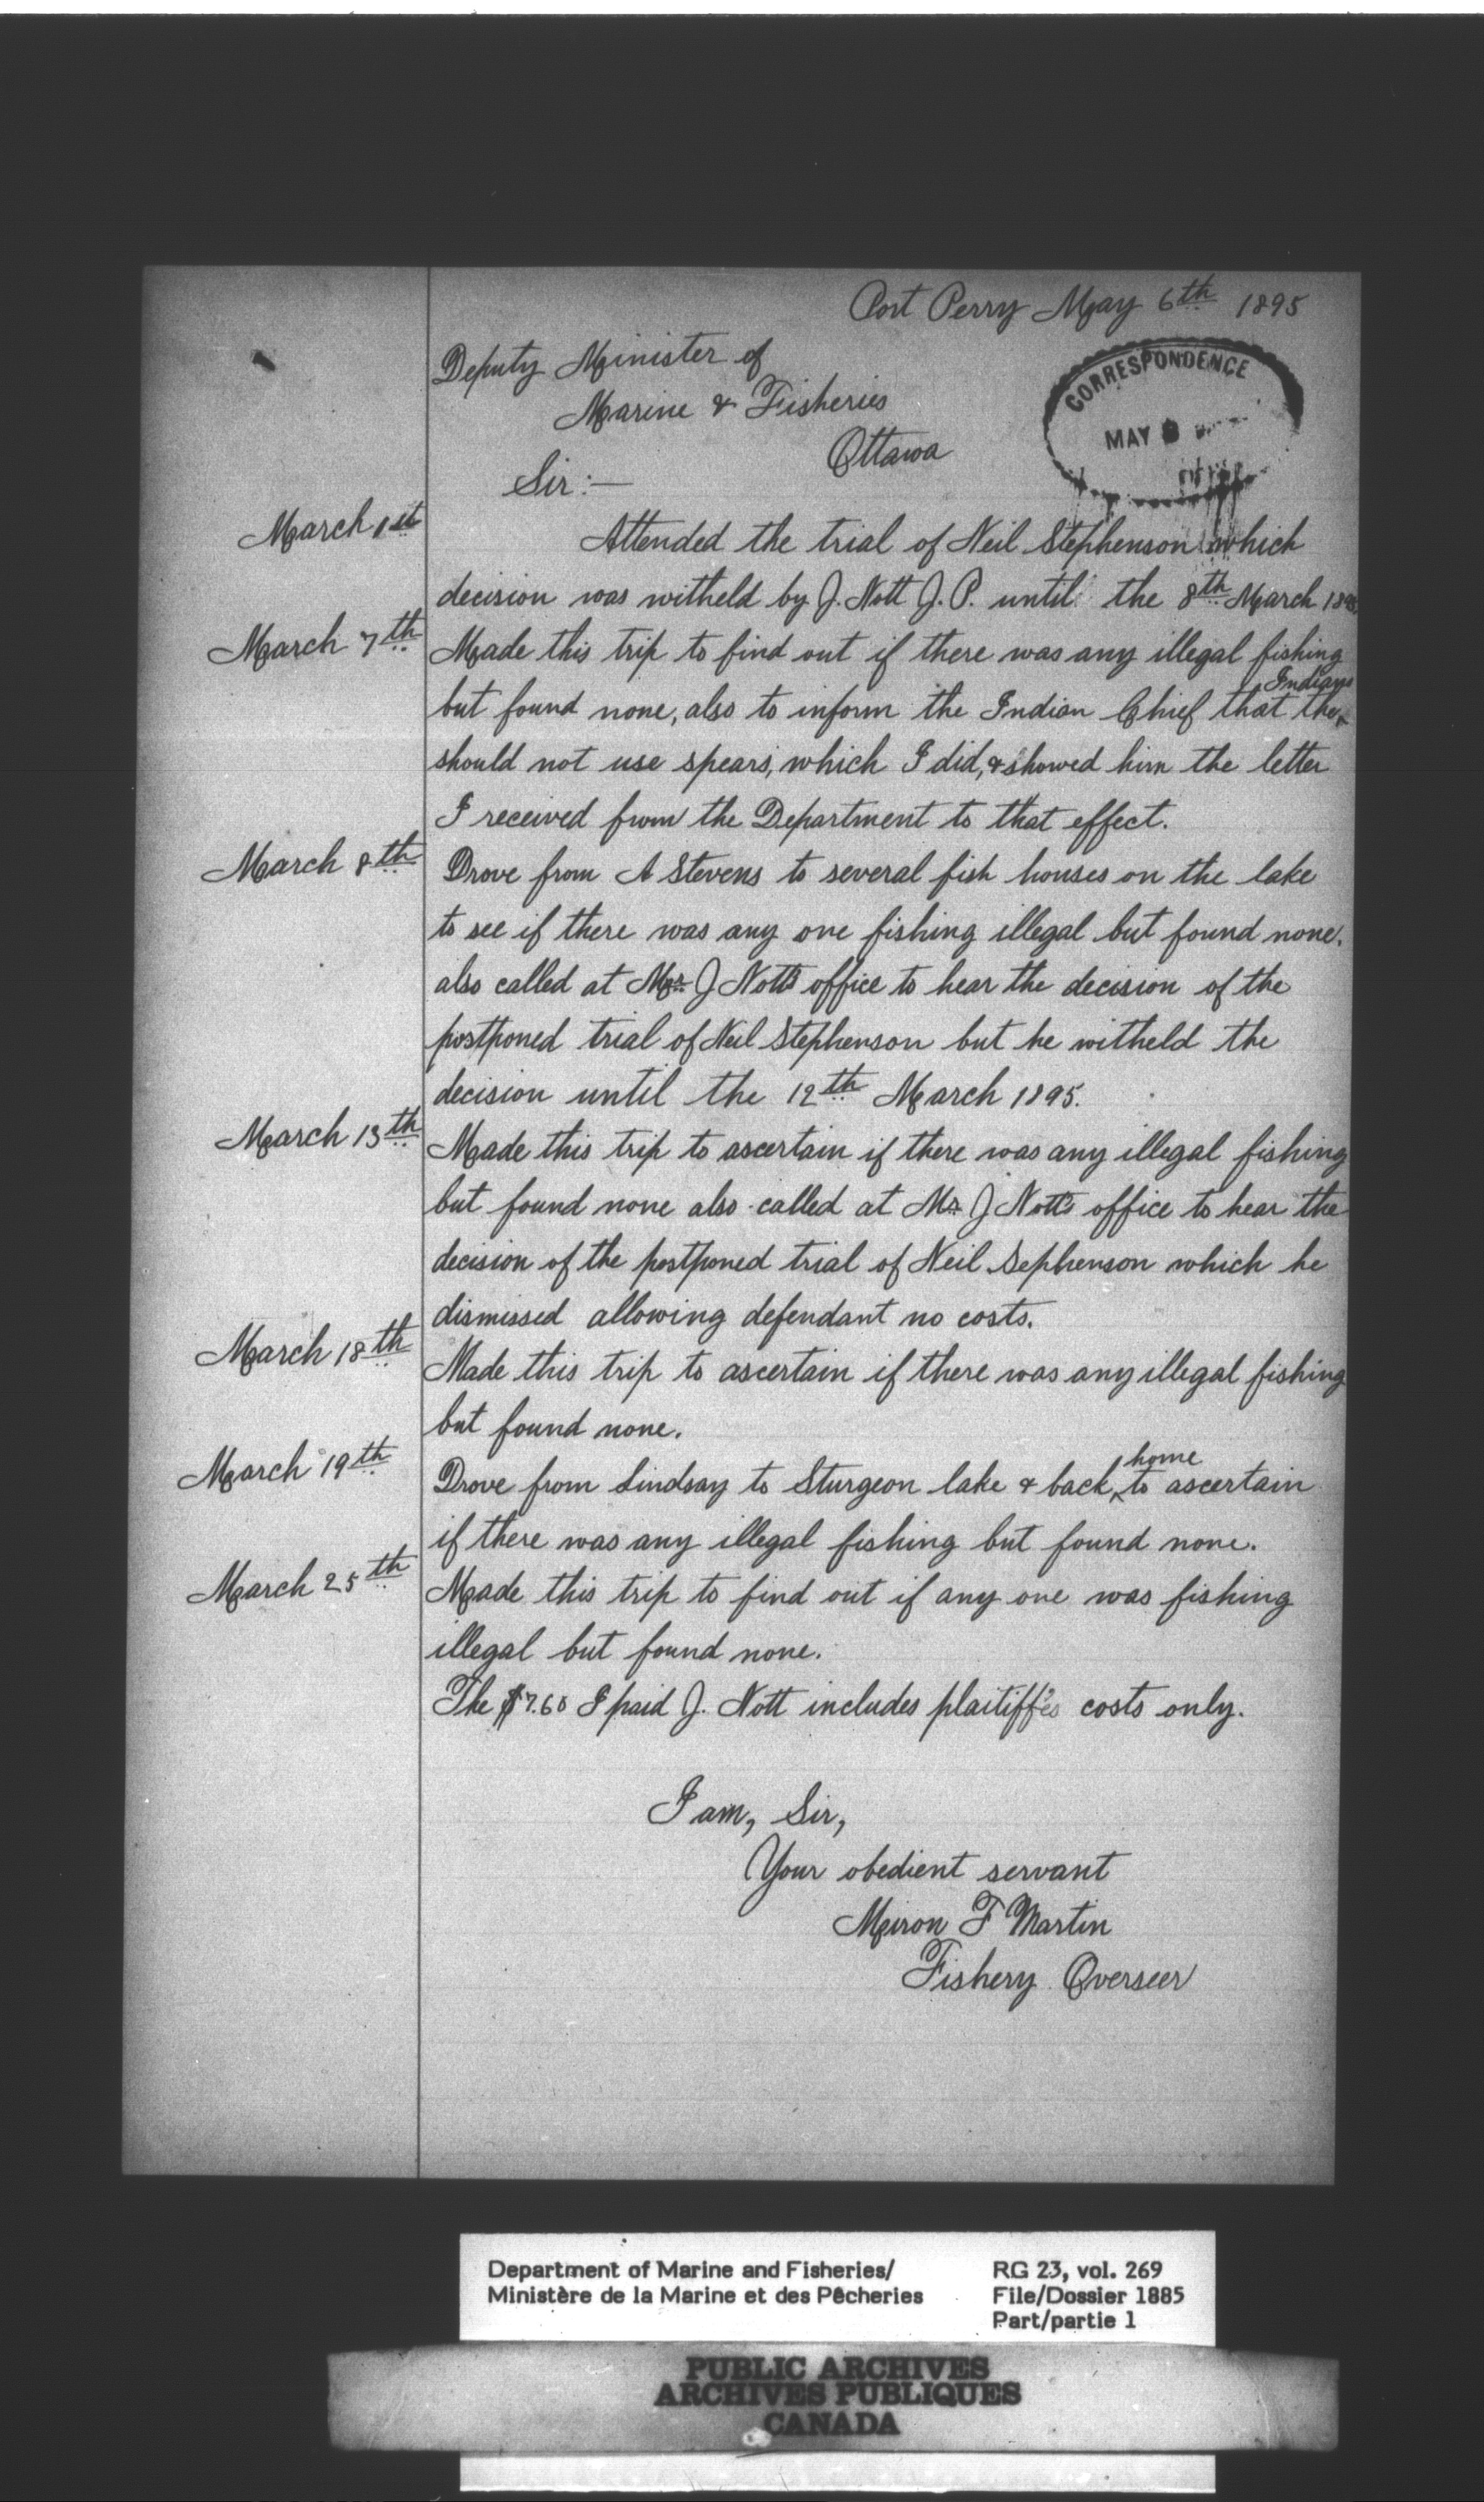 Port Perry May 6th 1895
Deputy Minister of
Marine & Fisheries
Ottawa
CORRESPONDENCE
MAY
Sir:—
March 1st
Attended the trial of Neil Stephenson which
decision was witheld by J. Nott J. P. until the 8th March 1895
March 7th
Made this trip to find out if there was any illegal fishing
but found none, also to inform the Indian Chief that the Indians
should not use spears, which I did, & showed him the letter
I received from the Department to that effect.
March 8th
Drove from A Stevens to several fish houses on the lake
to see if there was any one fishing illegal but found none.
also called at Mr. J Nott's office to hear the decision of the
postponed trial of Neil Stephenson but he witheld the
decision until the 12th March 1895.
March 13th
Made this trip to ascertain if there was any illegal fishing
but found none also called at Mr J Nott's office to hear the
decision of the postponed trial of Neil Sephenson which he
dismissed allowing defendant no costs.
March 18th
Made this trip to ascertain if there was any illegal fishing
but found none.
March 19th
Drove from Lindsay to Sturgeon lake & back home to ascertain
if there was any illegal fishing but found none.
March 25th
Made this trip to find out if any one was fishing
illegal but found none.
The $7.60 I paid J. Nott includes plaitiff's costs only.
I am, Sir,
Your obedient servant
Miron F Martin
Fishery Overseer
Department of Marine and Fisheries/
Ministère de la Marine et des Pêcheries
RG 23, vol. 269
File/Dossier 1885
Part/partie 1
PUBLIC ARCHIVES
ARCHIVES PUBLIQUES
CANADA